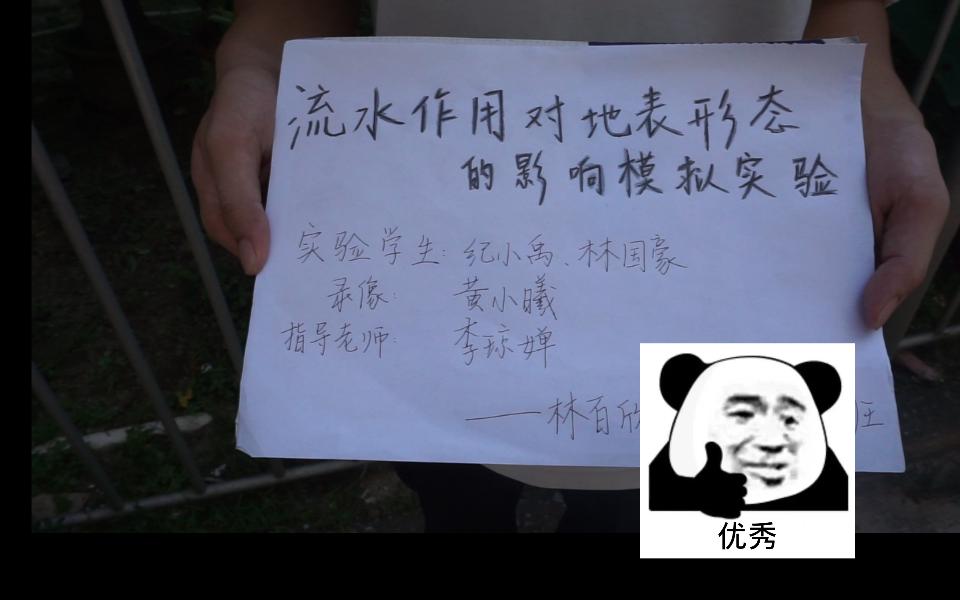 流水作用对地表形态
的影响模拟实验
实验学生：纪小禹、林国豪
录像： 黄小曦
指导老师： 李琼婵
——林百欣
优秀